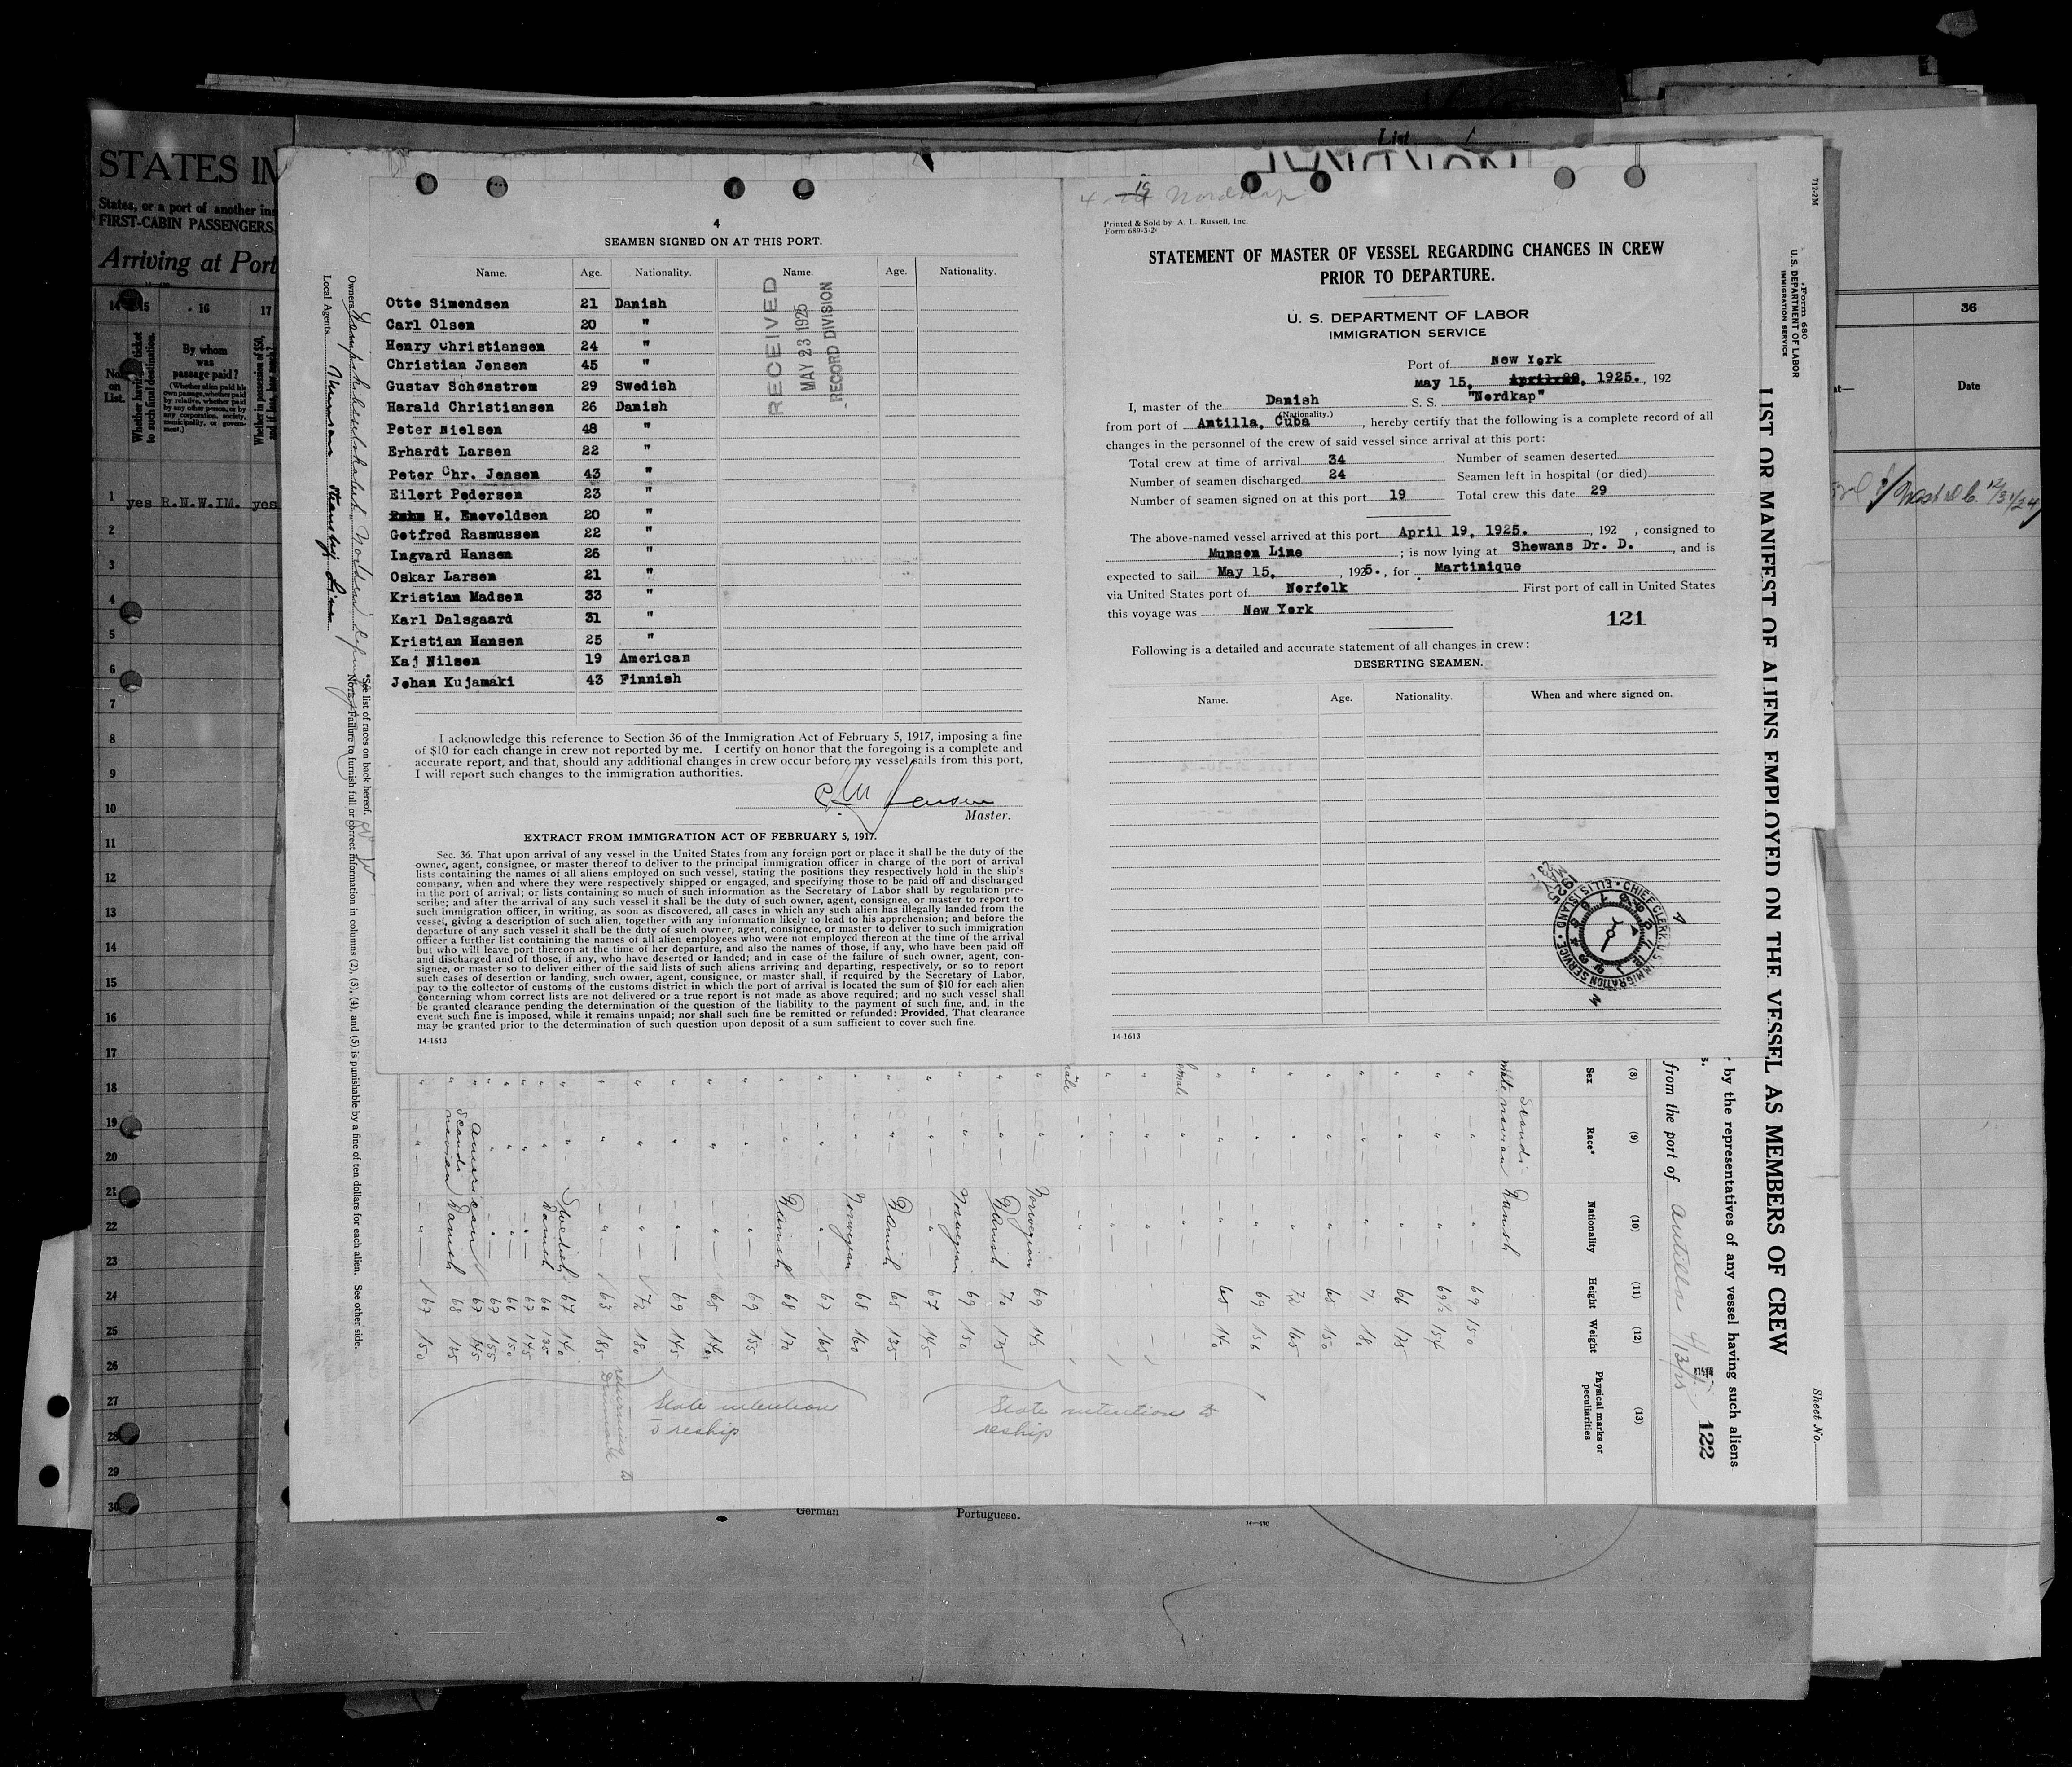 List 1
STATES IM
States, or a port of another ins
FIRST-CABIN PASSENGERS
Arriving at Port
14
15
16
17
No. on List.
Whether having ticket to such final destination.
By whom was passage paid?
(Whether alien paid his own passage, whether paid by relative, whether paid by any other person, or by any corporation, society, municipality, or government.)
1 yes R.N.W.IM. yes
2
3
4
5
6
7
8
9
10
11
12
13
14
15
16
17
18
19
20
21
22
23
24
25
26
27
28
29
30
Local Agents Munson Steamship Line
*See list of races on back hereof.
Note.—Failure to furnish full or correct information in columns (2), (3), (4), and (5) is punishable by a fine of ten dollars for each alien. See other side.
4
SEAMEN SIGNED ON AT THIS PORT.
Name. Age. Nationality. Name. Age. Nationality.
Otto Simondsen 21 Danish
Carl Olsen 20 "
Henry Christiansen 24 "
Christian Jensen 45 "
Gustav Schønstrøm 29 Swedish
Harald Christiansen 26 Danish
Peter Nielsen 48 "
Erhardt Larsen 22 "
Peter Chr. Jensen 43 "
Eilert Pedersen 23 "
H. Enevoldsen 20 "
Gotfred Rasmussen 22 "
Ingvard Hansen 26 "
Oskar Larsen 21 "
Kristian Madsen 33 "
Karl Dalsgaard 31 "
Kristian Hansen 25 "
Kaj Nilsen 19 American
Johan Kujamäki 43 Finnish
RECEIVED
MAY 23 1925
RECORD DIVISION
I acknowledge this reference to Section 36 of the Immigration Act of February 5, 1917, imposing a fine
of $10 for each change in crew not reported by me. I certify on honor that the foregoing is a complete and
accurate report, and that, should any additional changes in crew occur before my vessel sails from this port,
I will report such changes to the immigration authorities.
Jensen
Master.
EXTRACT FROM IMMIGRATION ACT OF FEBRUARY 5, 1917.
Sec. 36. That upon arrival of any vessel in the United States from any foreign port or place it shall be the duty of the
owner, agent, consignee, or master thereof to deliver to the principal immigration officer in charge of the port of arrival
lists containing the names of all aliens employed on such vessel, stating the positions they respectively hold in the ship's
company, when and where they were respectively shipped or engaged, and specifying those to be paid off and discharged
in the port of arrival; or lists containing so much of such information as the Secretary of Labor shall by regulation pre-
scribe; and after the arrival of any such vessel it shall be the duty of such owner, agent, consignee, or master to report to
such immigration officer, in writing, as soon as discovered, all cases in which any such alien has illegally landed from the
vessel, giving a description of such alien, together with any information likely to lead to his apprehension; and before the
departure of any such vessel it shall be the duty of such owner, agent, consignee, or master to deliver to such immigration
officer a further list containing the names of all alien employees who were not employed thereon at the time of the arrival
but who will leave port thereon at the time of her departure, and also the names of those, if any, who have been paid off
and discharged and of those, if any, who have deserted or landed; and in case of the failure of such owner, agent, con-
signee, or master so to deliver either of the said lists of such aliens arriving and departing, respectively, or so to report
such cases of desertion or landing, such owner, agent, consignee, or master shall, if required by the Secretary of Labor,
pay to the collector of customs of the customs district in which the port of arrival is located the sum of $10 for each alien
concerning whom correct lists are not delivered or a true report is not made as above required; and no such vessel shall
be granted clearance pending the determination of the question of the liability to the payment of such fine, and, in the
event such fine is imposed, while it remains unpaid; nor shall such fine be remitted or refunded: Provided, That clearance
may be granted prior to the determination of such question upon deposit of a sum sufficient to cover such fine.
14-1613
Nordkap
Printed & Sold by A. L. Russell, Inc.
Form 689-3-2
STATEMENT OF MASTER OF VESSEL REGARDING CHANGES IN CREW
PRIOR TO DEPARTURE.
U. S. DEPARTMENT OF LABOR
IMMIGRATION SERVICE
Port of New York
May 15, 1925., 192
I, master of the Danish S. S. "Nordkap"
(Nationality.)
from port of Antilla, Cuba, hereby certify that the following is a complete record of all
changes in the personnel of the crew of said vessel since arrival at this port:
Total crew at time of arrival 34 Number of seamen deserted
Number of seamen discharged 24 Seamen left in hospital (or died)
Number of seamen signed on at this port 19 Total crew this date 29
The above-named vessel arrived at this port April 19, 1925., 192 , consigned to
Munson Line ; is now lying at Shewans Dr. D., and is
expected to sail May 15, 1925., for Martinique
via United States port of Norfolk First port of call in United States
this voyage was New York
121
Following is a detailed and accurate statement of all changes in crew:
DESERTING SEAMEN.
Name. Age. Nationality. When and where signed on.
CHIEF CLERK U.S. IMMIGRATION SERVICE • ELLIS ISLAND
14-1613
712-2M
Form 680
U. S. DEPARTMENT OF LABOR
IMMIGRATION SERVICE
LIST OR MANIFEST OF ALIENS EMPLOYED ON THE VESSEL AS MEMBERS OF CREW
Sheet No.
by the representatives of any vessel having such aliens
from the port of Antilla
122
(8) (9) (10) (11) (12) (13)
Sex Race* Nationality Height Weight Physical marks or peculiarities
Scandinavian Danish
69 150
69½ 154
66 135
71 180
65 150
72 165
69 156
65 140
Norwegian 69 145
Danish 70 175
Norwegian 69 150
67 145
Danish 65 135
Norwegian 68 160
67 165
Danish 68 170
69 155
65 140
69 145
72 180
63 185
Swedish 67 140
Danish 66 135
67 145
66 150
67 155
American 67 145
Scandinavian Danish 68 135
67 150
State intention to reship
State intention to reship
returning to Denmark
36
Date
German Portuguese.